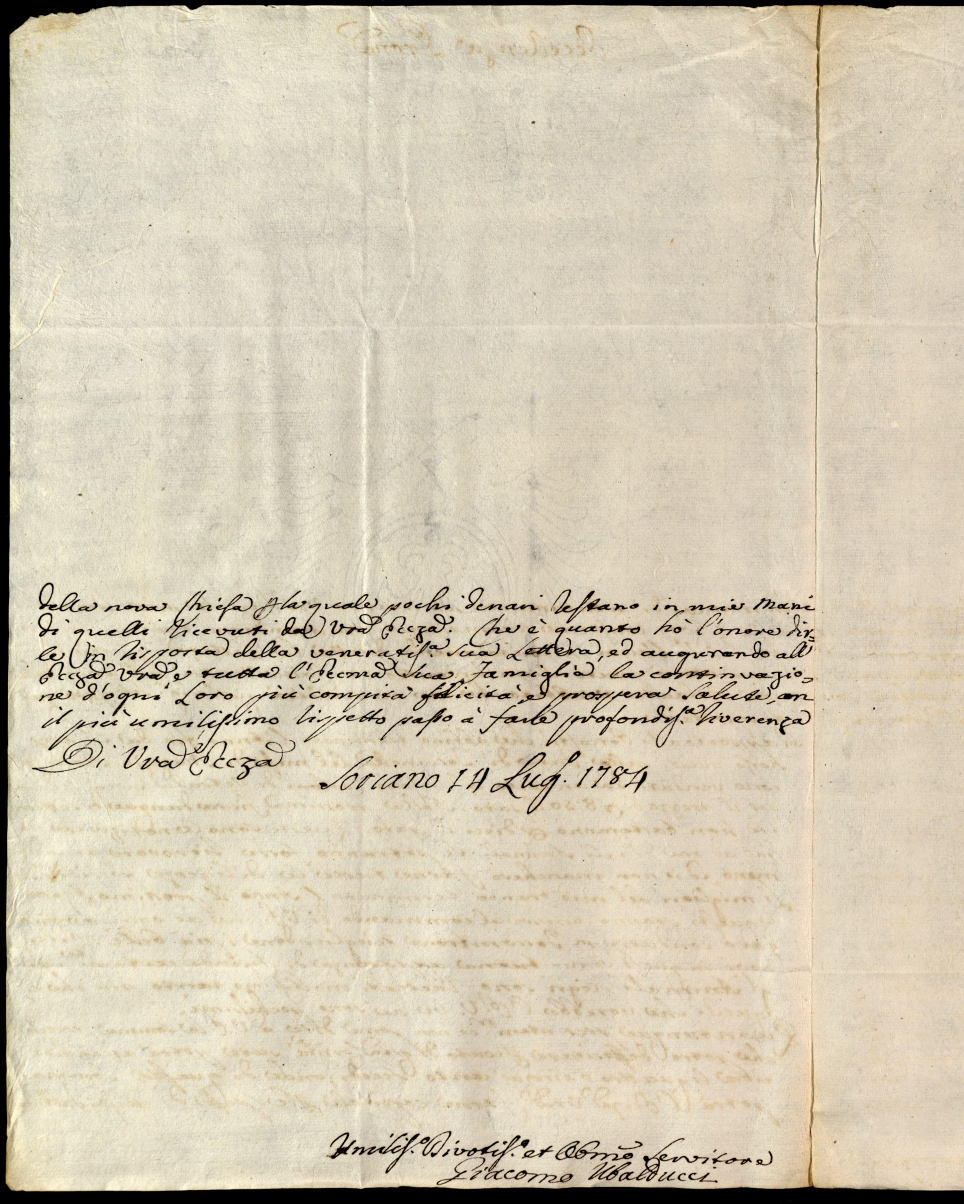 della nova Chiesa p la quale pochi denari restano in mie mani
di quelli ricevuti da Vrã Eccza. Che è quanto hò l'onore dir=
le in risposta della veneratis.ª sua Lettera, ed augurando all'
Eccza Vrã e tutta l'Eccma sua Famiglia la continvazio=
ne d'ogni Loro più compita felicità, e prospera Salute, con
il più umilissimo rispetto passo à farle profondis.ª riverenza
Di Vrã Eccza
Soriano 14 Lug. 1784
Umilis.º Divotis.º et Obmõ Servitore
Giacomo Ubalducci